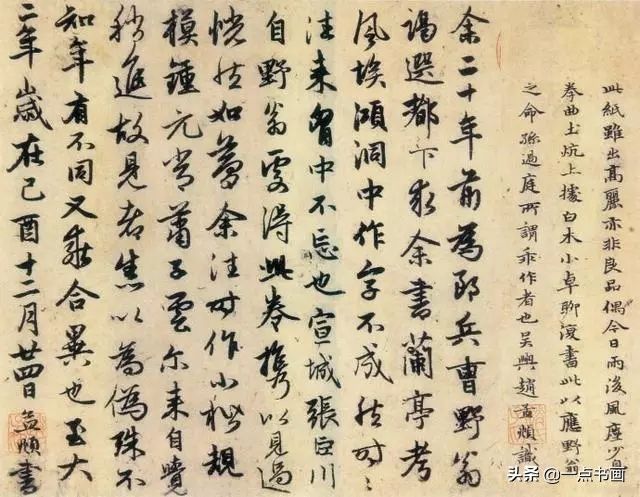 此紙雖出高麗亦非良品偶今日雨後風塵少
拳曲土炕上據白木小卓聊復書此以應野翁
之命孫過庭所謂乖作者也吳興趙孟頫識
余二十年前為郎兵曹野翁
謁選都下求余書蘭亭考
風埃澒洞中作字不成然時〻
往來胷中不忘也宣城張臣川
自野翁處得此卷攜以見過
恍然如夢余往時作小楷規
模鍾元常蕭子雲尓來自覺
稍進故見者悉以為偽殊不
知年有不同又乖合異也至大
二年歲在己酉十二月廿四日孟頫書
头条 @一点书画